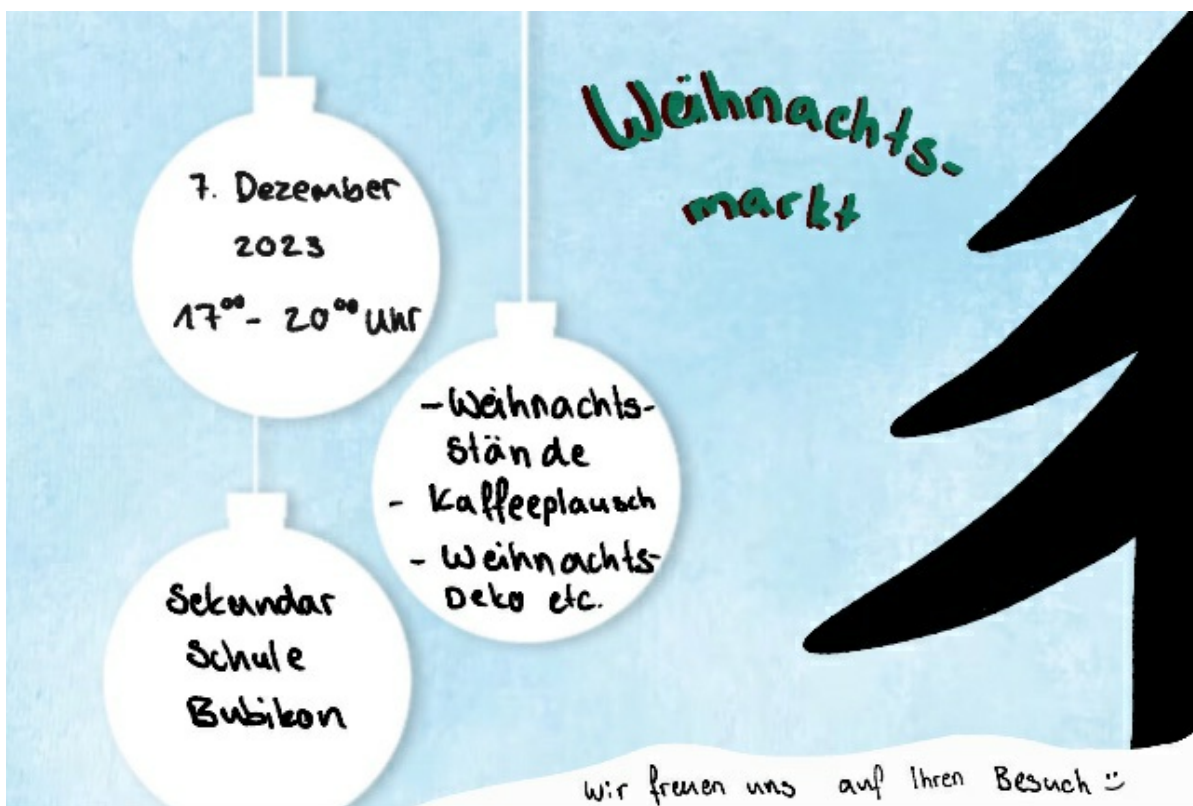 Weihnachts-
markt
7. Dezember
2023
17⁰⁰ - 20⁰⁰ Uhr
- Weihnachts-
Stände
- Kaffeeplausch
- Weihnachts-
Deko etc.
Sekundar
Schule
Bubikon
Wir freuen uns auf Ihren Besuch :)